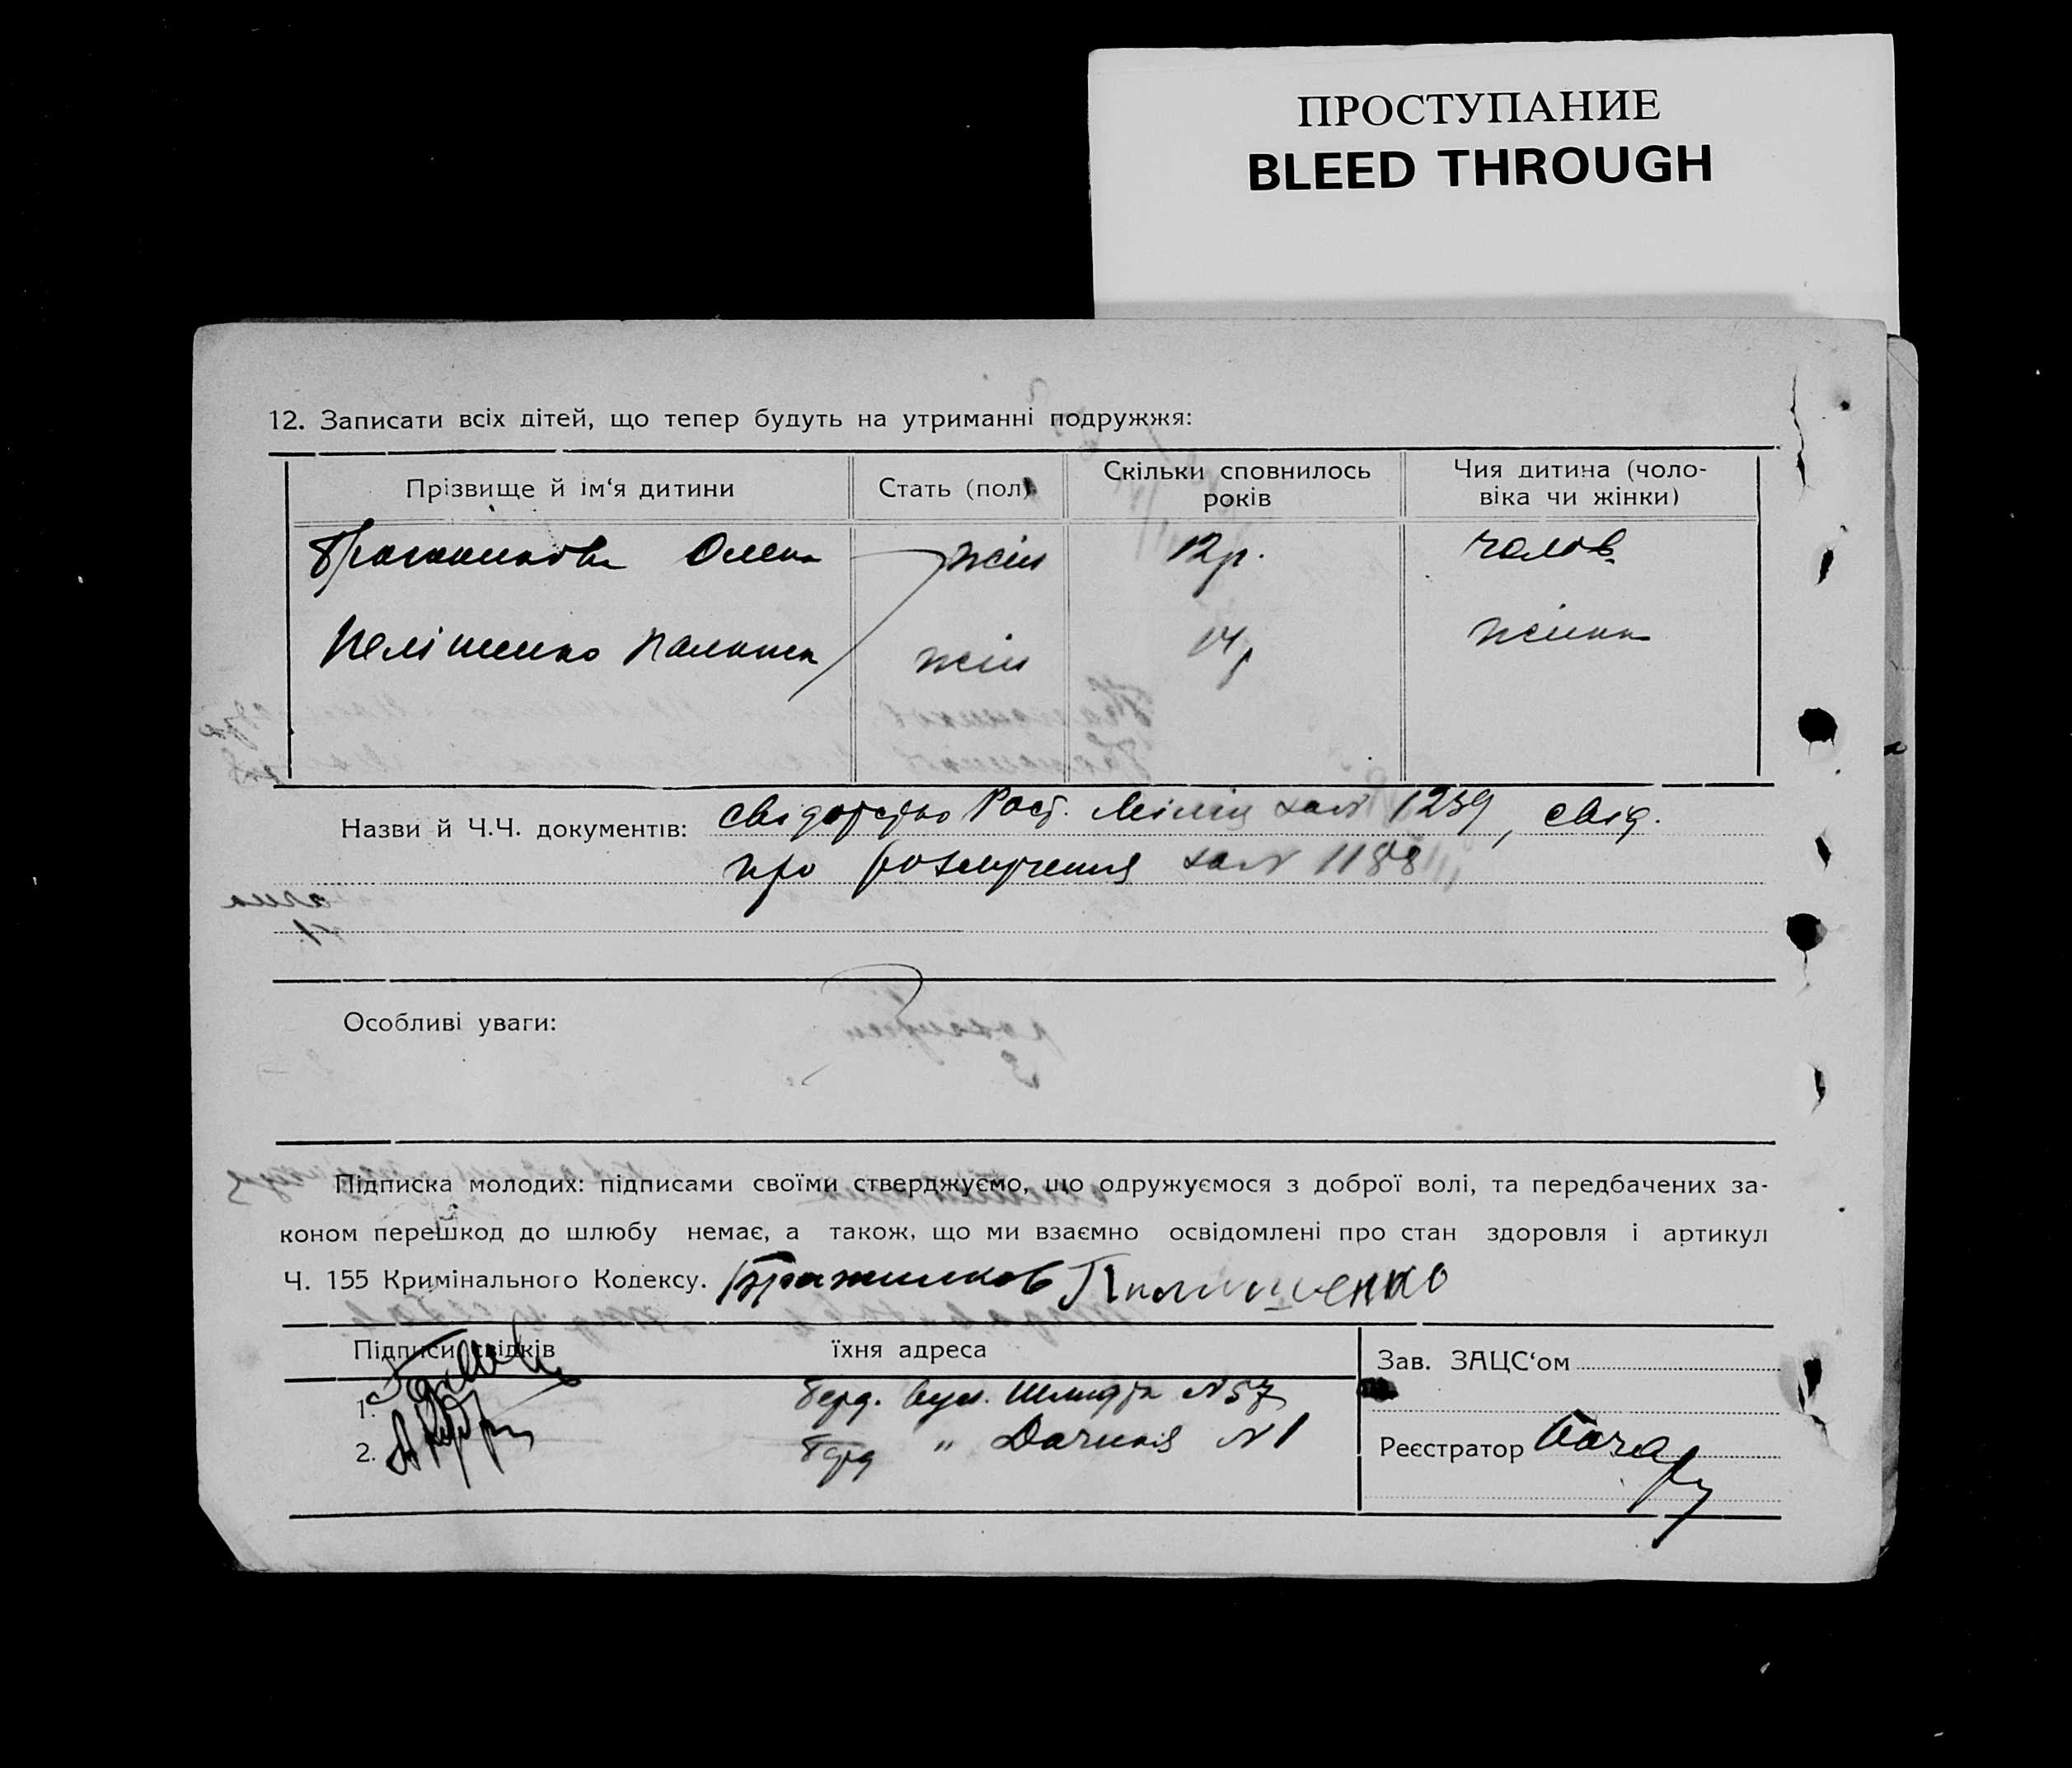 ПРОСТУПАНИЕ
BLEED THROUGH
12. Записати всіх дітей, що тепер будуть на утриманні подружжя:
Прізвище й ім‘я дитини
Стать (пол)
Скільки сповнилось років
Чия дитина (чоло-
віка чи жінки)
Олена жін 12 р. чолов.
жін 14 р жінки
Назви й Ч.Ч. документів: свідотство Рост. Міліц за № 1239, свід.
про розлучення за № 1188
Особливі уваги:
Підписка молодих: підписами своїми стверджуємо, що одружуємося з доброї волі, та передбачених за-
коном перешкод до шлюбу немає, а також, що ми взаємно освідомлені про стан здоровля і артикул
Ч. 155 Кримінального Кодексу. Бражников
Підписи свідків їхня адреса
Зав. ЗАЦС‘ом
1. Берд. вул. Шмидта № 57
2. Берд " Дачна № 1
Реєстратор